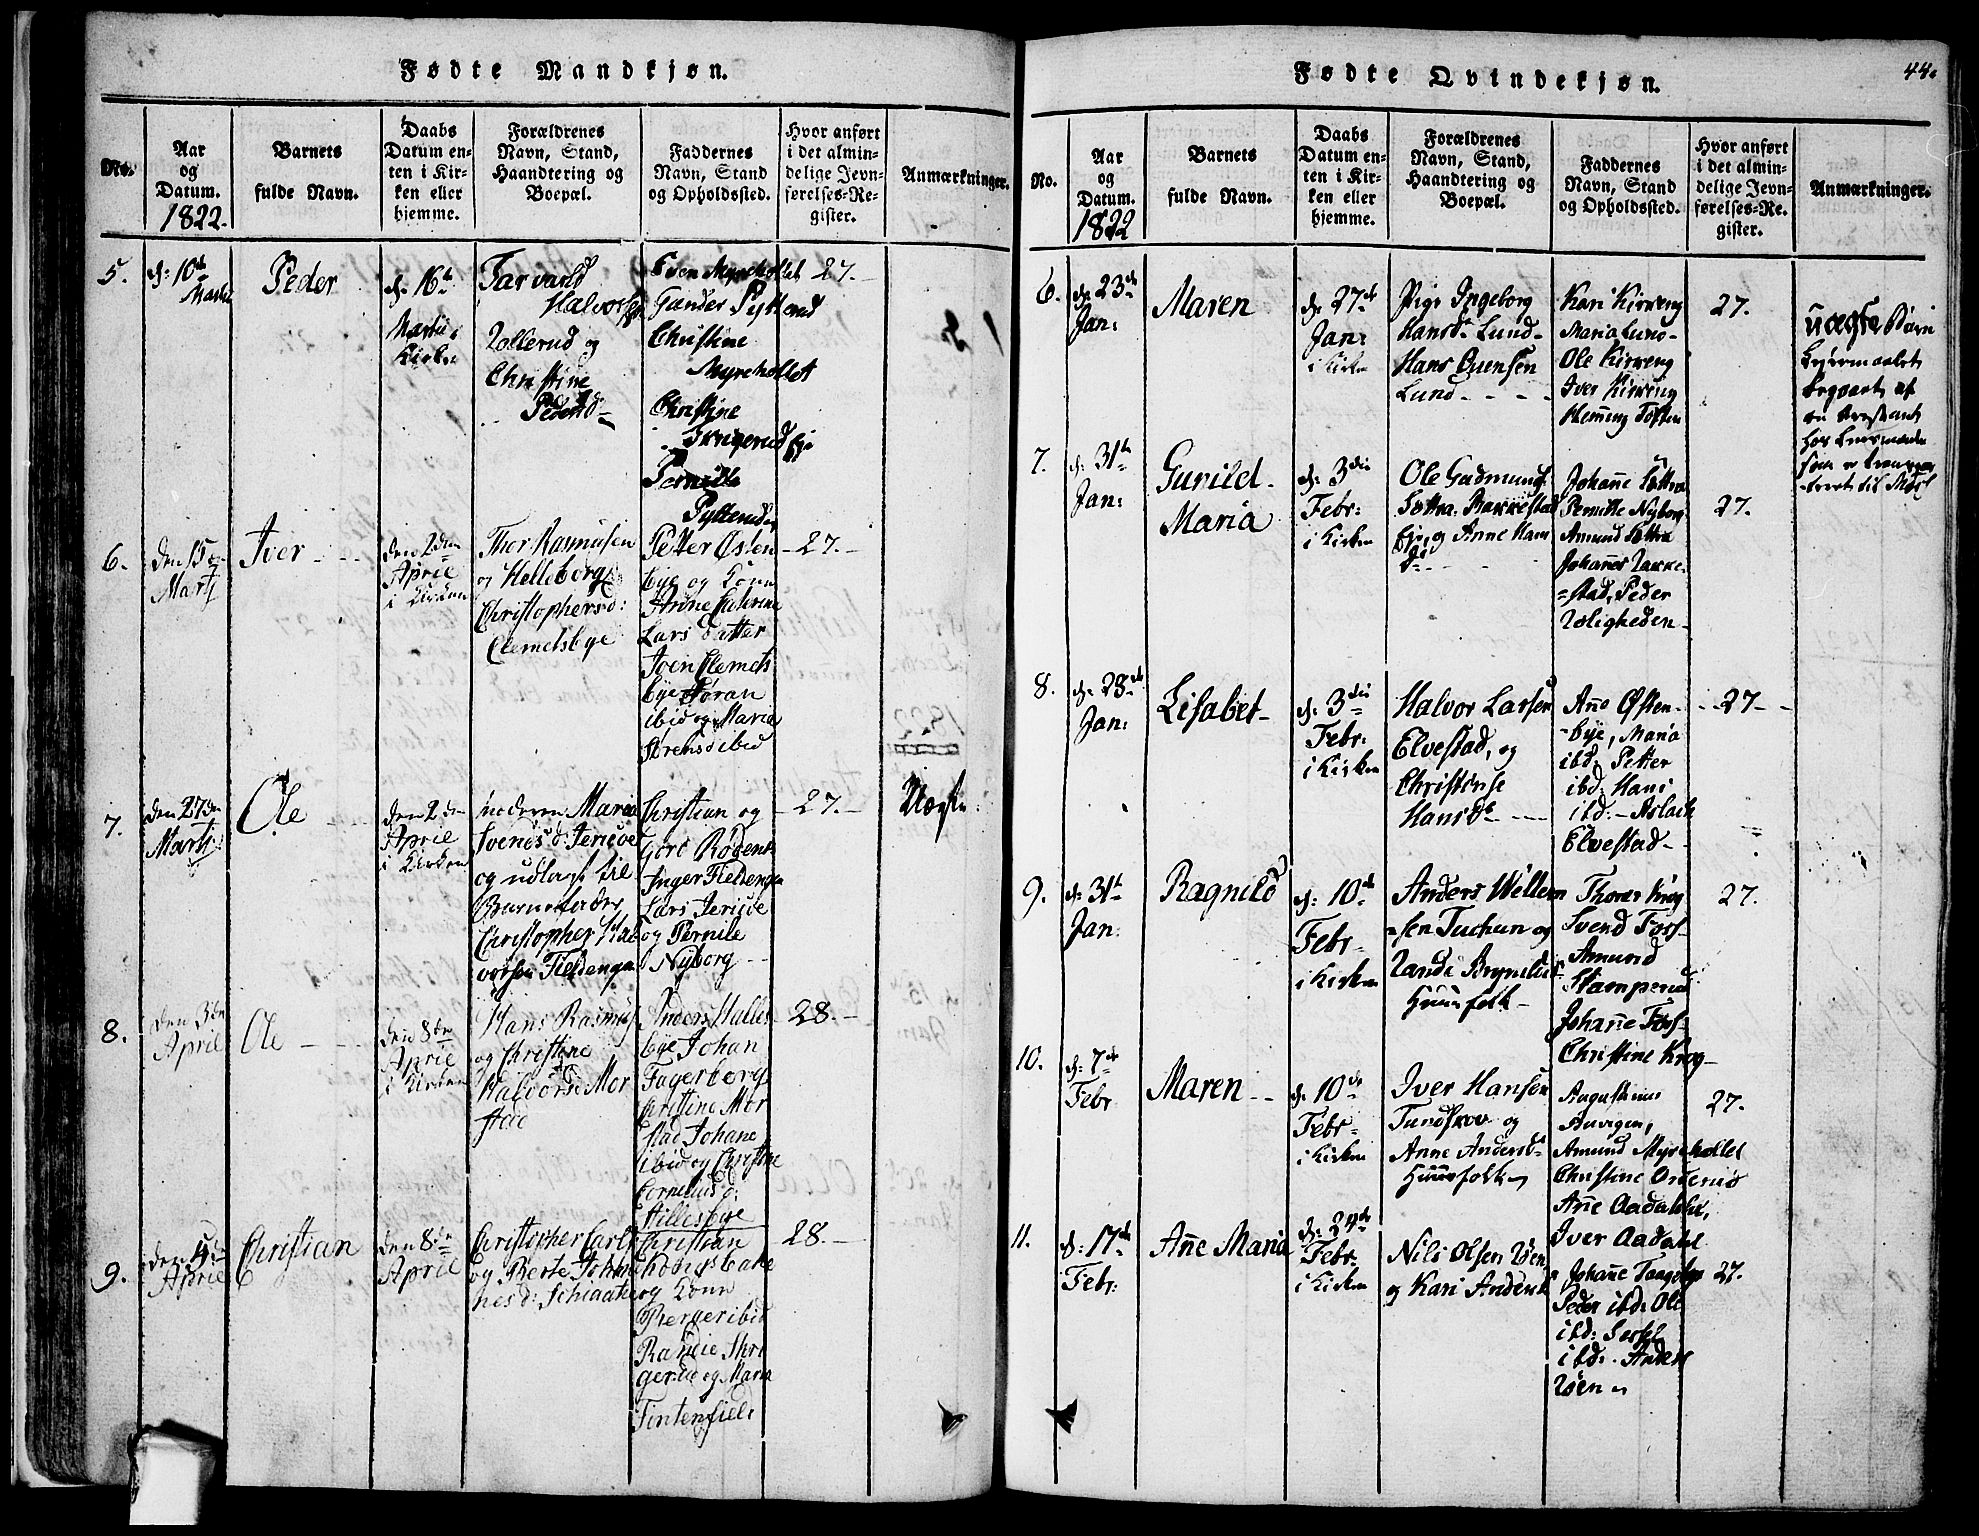 Fødte Mandkjøn.
No.
Aar
og
Datum.
1822.
Barnets
fulde Navn.
Daabs
Datum en-
ten i Kir-
ken eller
hjemme.
Forældrenes
Navn, Stand,
Haandtering og
Boepæl.
Faddernes
Navn, Stand
og Opholdssted.
Hvor anført
i det almin-
delige Jevn-
førelses-Re-
gister.
Anmærkninger.
5.
d: 10de
Martii
Peder
d. 16de
Martii i
Kirken
Tarvald
Halvors
og
Christine
Pedersd
Sven Myreholtet
Gunder
Christine
Myreholtet
Christine
Pernille
27.
6.
den 15de
Martj
Iver
den 2den
April
i Kirken
Thor Rasmusen
og Helleborg
Christophersd:
Clemetsbye
Petter Østen
bye og Kone
Anne Cathrine
Lars datter
Sven Clemets
bye Søran
ibid og Maria
Sørensd ibid
27.
7.
den 27de
Martj
Ole
den 2den
April
i Kirken
moderen Maria
Svends d:
og udlagt til
Barnefader
Christopher Hal
vorsen Fieldengen
Christian og
Goro Rødent
Inger Fieldengen
Lars
og Pernile
Nyborg
27.
Uægte
8.
den 3die
April
Ole
den 8de
April
i Kirken
Hans Rasmus
og Christine
Halvorsd Mor
stad
Anders Hilles
bye Johan
Fagerborg
Christine Mor
stad Johane
ibid og Christine
Cornelius d:
Hillesbye
28.
9.
den 4de
April
Christian
den 8de
April
Christopher Carls
og Berte Johan
nes d:
Christian
og Kone
Berger ibid
Randie Skri
gerud og Maria
Tintenfield
28.
Fødte Qvindekjøn.
44.
No.
Aar
og
Datum.
1822
Barnets
fulde Navn.
Daabs
Datum en-
ten i Kir-
ken eller
hjemme.
Forældrenes
Navn, Stand,
Haandtering og
Boepæl.
Faddernes
Navn, Stand
og Opholdssted.
Hvor anført
i det almin-
delige Jevn-
førelses-Re-
gister.
Anmærkninger.
6.
d. 23de
Jan:
Maren
d. 27de
Jan:
i Kirken
Pige Ingeborg
Hansd. Lund
Hans Evensen
Lund
Kari Kirkeng
Maria Lund
Ole Kirkeng
Iver Kirkeng
Henning Toften
27.
uægte Barn
Leiermaalet
begaaet af
en
hos Leiermanden
som er
til Moss
7.
d: 31te
Jan:
Gunild
Maria
d: 3die
Febr:
i Kirken
Ole Gudmunds
Sottra Rakkestad
Eje, og Anne Hans
d:
Johanne Sottra
Pernille Nyborg
Amund Sottra
Johannes Rakke-
stad, Peder
Roligheden
27.
8.
d. 28de
Jan:
Lisabet
d: 3die
Febr:
i Kirken
Halvor Larsen
Elvestad, og
Christense
Hansd.
Anne Østen-
bye, Maria
ibd: Petter
ibd: Hans
ibd: Aslach
Elvestad
27
9.
d: 31te
Jan:
Ragnild
d: 10de
Febr:
i Kirken
Anders Willum
sen Tuchun og
Randi Brynilds
Huusfolk
Thores Krog
Svend Fors
Amund
Stamperud
Johanne Fors
Christine Krog
27.
10.
d: 7de
Febr
Maren
d: 10de
Febr
i Kirken
Iver Hansen
Tundskov og
Anne Andersd.
Huusfolk
Augustinus
Amund Myreholtet
Christine Overud
Anne Aadahl,
Iver Aadahl
27.
11.
d: 17de
Febr:
Anne Maria
d: 24de
Febr:
i Kirken
Nils Olsen Røen
og Kari Andersd
Johanne
Peder ibd: Ole
ibd:
ibd: Anders
Røen
27.